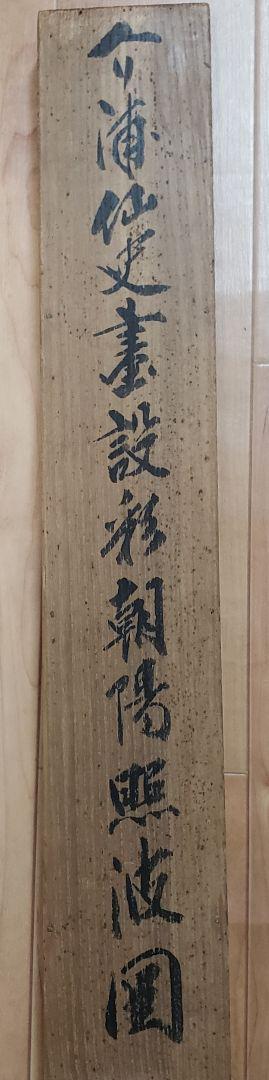 介浦仙史畫設彩朝陽照波圖